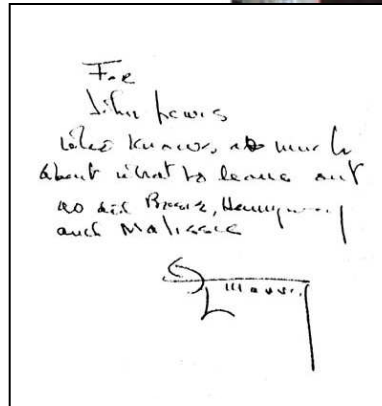 For
John Lewis
who knows, as much
about what to leave out
as did Braque, Hemingway
and Matisse